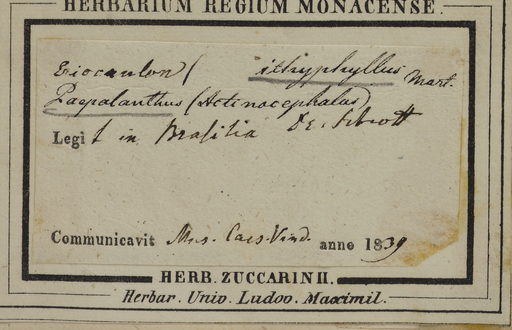 HERBARIUM REGIUM MONACENSE.
Eriocaulon ( ithyphyllus Mart.
Paepalanthus (Actinocephalus)
Legit in Brasilia Dr. Schott
Communicavit Mus. Caes. Vind. anno 1839
HERB. ZUCCARINII.
Herbar. Univ. Ludov. Maximil.